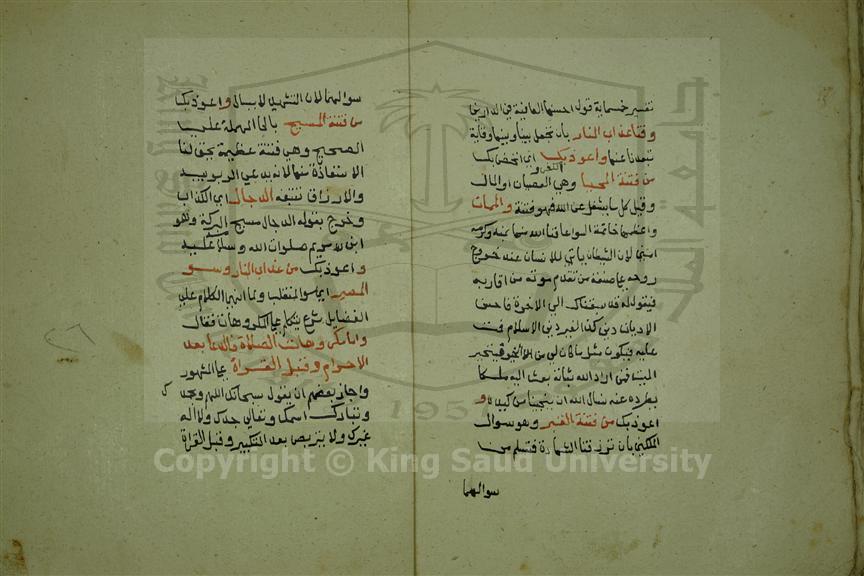 تفسير خمسماية قول احسنها العافية في الدارين
وقنا عذاب النار بان تجعل بيننا وبينها وقاية
تبعدنا عنها واعوذ بك اي اتحصن بك
من فتنة المحيا وهي الكفر والعصيان او المال
وقيل كل ما يشغل عن الله فهو فتنة والممات
واعظمها خاتمة السوء اعاذنا الله منها بمنه وكرمه
لان الشيطان ياتي للانسان عند خروج
روحه على صفة من تقدم موته من اقاربه
فيقول له قد سبقتك الى الاخرة فاحسن
الاديان دين كذا لغير دين الاسلام فمت
عليه فيكون مثل ما كان لي من الخير فيتحير
الميت فمن اراد الله ثباته بعث اليه ملكا
يطرده عنه نسال الله ان ينجينا من كيده و
اعوذ بك من فتنة القبر وهو سوال
الملكين بان ترزقنا الشهادة فنسلم من
سوالهما
سوالهما لان الشهيد لا يسال واعوذ بك
من فتنة المسيح بالحا المهملة على
الصحيح وهي فتنة عظيمة يحق لنا
الاستعاذة منها لانه يدعي الربوبية
والارزاق تتبعه الدجال اي الكذاب
وخرج بقوله الدجال مسيح البركة وهو
ابن مريم صلوات الله وسلامه عليه
واعوذ بك من عذاب النار وسو
المصير اي سو المنقلب ولما انهى الكلام على
الفضايل شرع يتكلم على المكروهات فقال
واما مكروهات الصلاة فالدعا بعد
الاحرام وقبل القراة على المشهور
واجاز بعضهم ان يقول سبحانك اللهم وبحمدك
وتبارك اسمك وتعالى جدك ولا اله
غيرك ولا يتربص بعد التكبير وقبل القراة
Copyright © King Saud University
جامعة الملك سعود
1957